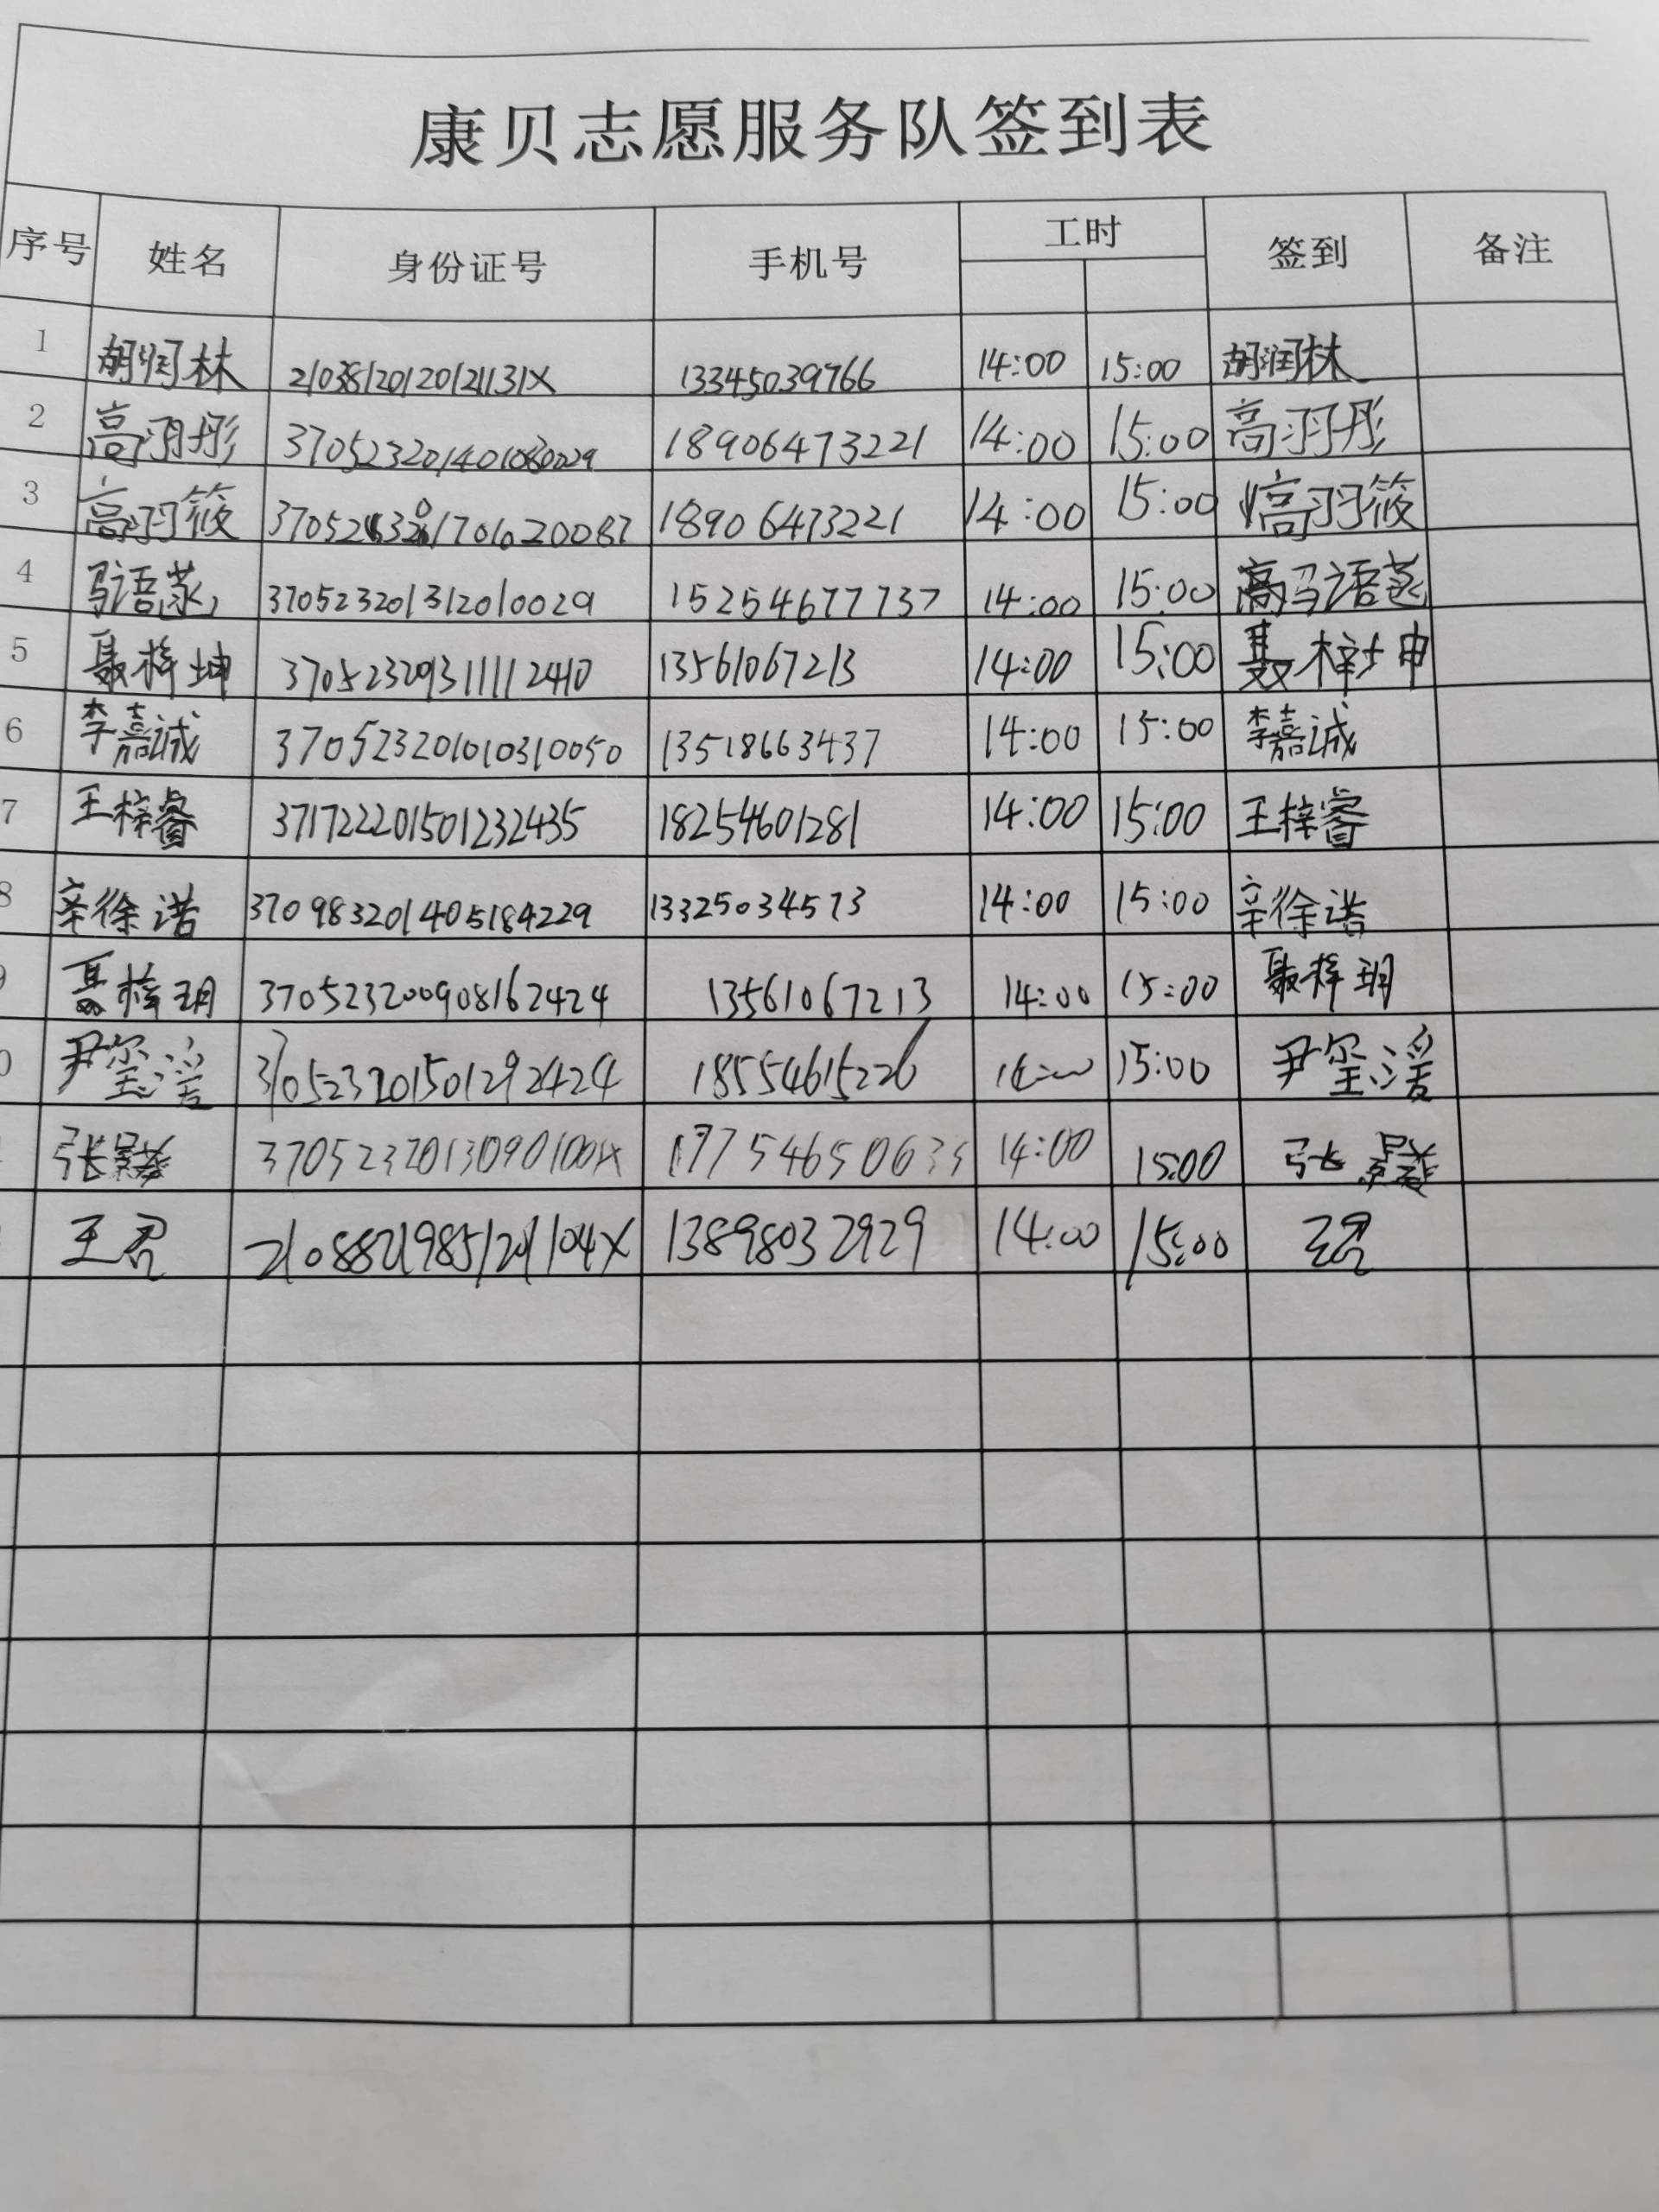 康贝志愿服务队签到表
序号 姓名 身份证号 手机号 工时 签到 备注
1 胡润林 21038120120121131X 13345039766 14:00 15:00 胡润林
2 高羽彤 370523201401080029 18906473221 14:00 15:00 高羽彤
3 高羽筱 18906473221 14:00 15:00 高羽筱
4 马语 370523201312010029 15254677737 14:00 15:00 马语
5 聂梓坤 13561067213 14:00 15:00 聂梓坤
6 李嘉诚 370523201010310050 13518663437 14:00 15:00 李嘉诚
7 王梓睿 371722201501232435 18254601281 14:00 15:00 王梓睿
8 辛徐诺 370983201405184229 13325034573 14:00 15:00 辛徐诺
9 聂梓玥 370523200908162424 13561067213 14:00 15:00 聂梓玥
0 尹玺湲 370523201501292424 18554615226 14:00 15:00 尹玺湲
张 37052320130901001X 14:00 15:00 张
王君 21088219851201104X 13898032929 14:00 15:00 王君